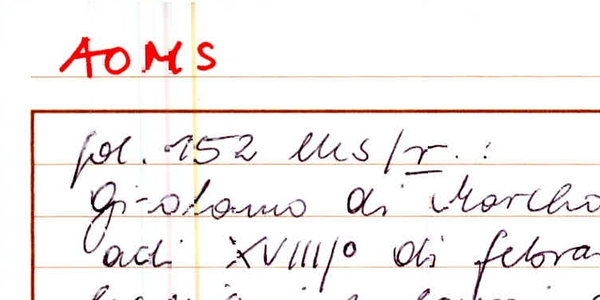 AOMS
fol. 152 lks/r. :
Girolamo di Marcho
adi XVIII/o di febra